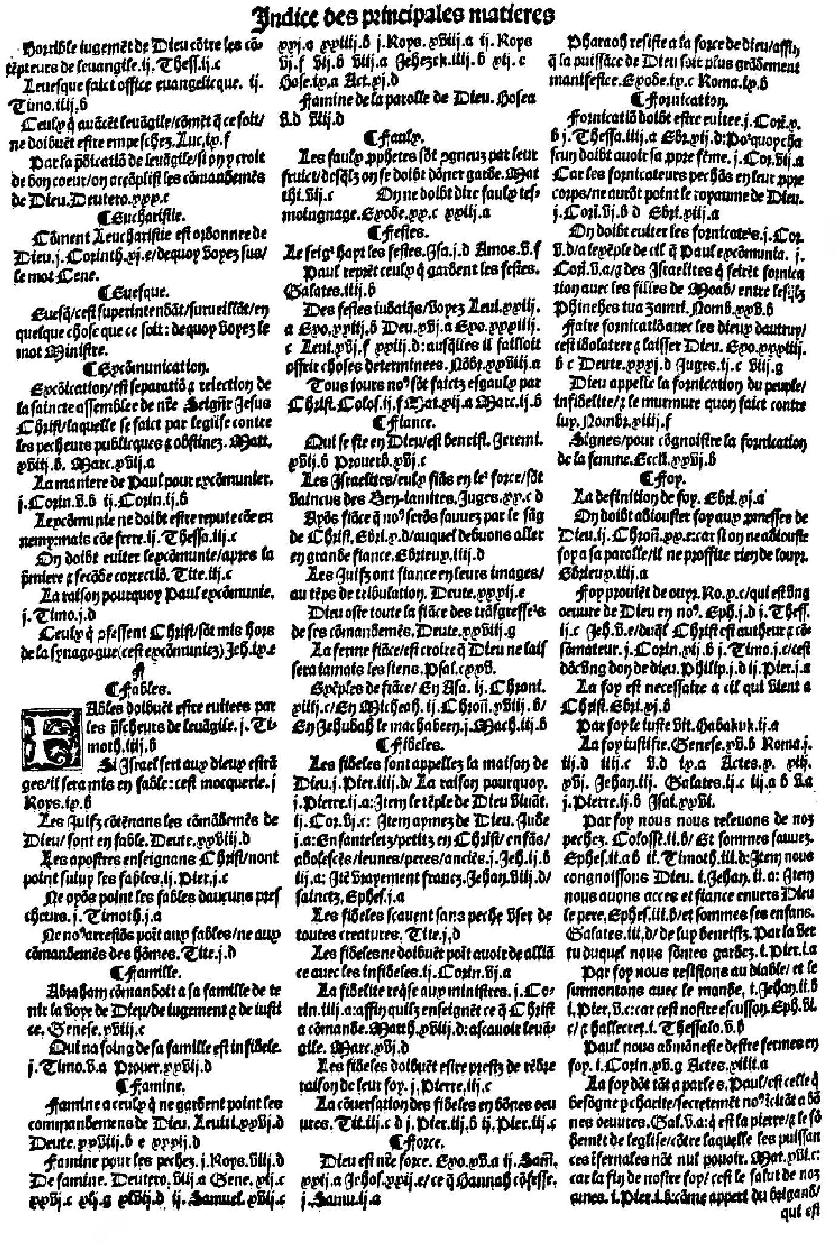 Indice des principales matieres
Horrible iugemẽt de Dieu cõtre les cõ-
tẽpteurs de leuangile. ij. Thess. ij. c
Leuesque faict office euangelicque. ij.
Timo. iiij. b
Ceulx q̃ auãcẽt leuãgile/cõmẽt q̃ ce soit/
ne doibuẽt estre empeschez. Luc. ix. f
Par la p̃dicatiõ de leuãgile/si on y croit
de bon coeur/on accõplist les cõmandemẽs
de Dieu. Deutero. xxx. c
¶Eucharistie.
Cõment Leucharistie est ordonnee de
Dieu. j. Corinth. xj. e/dequoy voyez sus/
le mot Cene.
¶Euesque.
Euesq̃/cest superintendãt/surueillãt/en
quelque chose que ce soit: dequoy voyez le
mot Ministre.
¶Excõmunication.
Excõication/est separatiõ ⁊ reiection de
la saincte assemblee de nr̃e Seignr̃ Jesus
Christ/laquelle se faict par leglise contre
les pecheurs publicques ⁊ obstinez. Matt.
xviij. b. Marc. xviij. a
La maniere de Paul pour excõmunier.
j. Corin. v. b ij. Corin. ij. b
Lexcõmunie ne doibt estre repute cõe en
nemy: mais cõe frere. ij. Thessa. iij. c
On doibt euiter lexcõmunie/apres la
p̃miere ⁊ secõde correctiõ. Tite. iij. c
La raison pourquoy Paul excõmunie.
j. Timo. j. d
Ceulx q̃ p̃fessent Christ/sõt mis hors
de la synagogue (cest excõmuniez). Jeh. ix. e
F
¶Fables.
FAbles doibuẽt estre euitees par
les p̃scheurs de leuãgile. j. Ti-
moth. iiij. b
Si Israel sert aux dieux estrã
ges/il sera mis en fable: cest mocquerie. j
Roys. ix. b
Les Juifz cõtẽnans les cõmãdemẽs de
Dieu/ sont en fable. Deute. xxviij. d
Les apostres enseignans Christ/nont
point suiuy les fables. ij. Pier. j. c
Ne oyõs point les fables daucuns pres
cheurs. j. Timoth. j. a
Ne no⁹ arrestõs poĩt aux fables/ne aux
cõmandemẽs des hõmes. Tite. j. d
¶Famille.
Abraham cõmandoit a sa famille de te
nir la voye de Dieu/de iugement ⁊ de iusti
ce. Genese. xviij. c
Qui na soing de sa famille est infidele.
j. Timo. v. a Prouer. xxvij. d
¶Famine.
Famine a ceulx q̃ ne gardent point les
commandemens de Dieu. Leuiti. xxvj. d
Deute. xxviij. b e xxxij. d
Famine pour les pechez. j. Roys. viij. d
De famine. Deutero. viij. a Gene. xij. c
xxvj. c xlj. g xlvij. d ij. Samuel. xvij. c
xxj. a xxiiij. b j. Roys. xviij. a ij. Roys
vj. f vij. b viij. a Jehezek. iiij. b xij. c
Hose. ix. a Act. xj. d
Famine de la parolle de Dieu. Hosea
v. d viij. d
¶Faulx.
Les faulx p̃phetes sõt ⁊gneuz par leur
fruict/desq̃lz on se doibt dõner garde. Mat
thi. vij. c On ne doibt dire faulx tes-
moingnage. Exode. xx. c xxiij. a
¶Festes.
Le seig⁹ hayt les festes. Isa. j. d Amos. v. f
Paul reprẽt ceulx q̃ gardent les festes.
Galates. iiij. b
Des festes iudaiq̃s/voyez Leui. xxiij.
a Exo. xxiij. b Deu. xvj. a Exo. xxxiiij.
c Leui. xvj. f xxiij. d: ausq̃lles il failloit
offrir choses determinees. Nõbr. xxviij. a
Tous iours no⁹ sõt faictz esgaulx par
Christ. Colos. ij. f Mat. xij. a Marc. ij. b
¶Fiance.
Qui se fie en Dieu/est beneist. Jeremi.
xvij. b Prouerb. xvj. c
Les Israelites/eulx fiãs en le⁹ force/sõt
vaincus des Ben-iamites. Juges. xx. c d
Ayõs fiãce q̃ no⁹ serõs sauuez par le sãg
de Christ. Ebri. x. d/auquel debuons aller
en grande fiance. Ebrieux. iiij. d
Les Juifz ont fiance en leurs images/
au tẽps de tribulation. Deute. xxxij. e
Dieu oste toute la fiãce des trãsgresse⁹s
de ses cõmandemẽs. Deute. xxviij. g
La ferme fiãce/est croire q̃ Dieu ne lais
sera iamais les siens. Psal. cxxv.
Exẽples de fiãce/ En Asa. ij. Chroni.
xiiij. c/ En Micheah. ij. Chroñ. xviij. b/
En Jehudah le machabeen. j. Mach. iij. b
¶Fideles.
Les fideles sont appellez la maison de
Dieu. j. Pier. iiij. d/ La raison pourquoy.
j. Pierre. ij. a: Item le tẽple de Dieu viuãt.
ij. Cor. vj. c: Item aymez de Dieu. Jude
j. a: Enfanteletz/petitz en Christ/ enfãs/
adolescẽs/ieunes/peres/anciẽs. j. Jeh. ij. b
iij. a: Itẽ vrayement francz. Jehan. viij. d/
sainctz. Ephes. j. a
Les fideles scauent sans peche vser de
toutes creatures. Tite. j. d
Les fideles ne doibuẽt poĩt auoir de alliã
ce auec les infideles. ij. Corin. vj. a
La fidelite req̃se aux ministres. j. Co-
rin. iiij. a: affin quilz enseignẽt ce q̃ Christ
a cõmande. Matth. xxviij. d: ascauoir leuã-
gile. Marc. xvj. d
Les fideles doibuẽt estre prestz de rẽdre
raison de leur foy. j. Pierre. iij. c
La cõuersation des fideles en bõnes oeu
ures. Tit. iij. c d j. Pier. iij. b ij. Pier. iij. c
¶Force.
Dieu est nr̃e force. Exo. xv. a ij. Sam̃.
xxij. a Jehos. xxij. e/ce q̃ Hannah cõfesse.
j. Samu. ij. a
Pharaoh resiste a la force de dieu/affin
q̃ la puissãce de Dieu soit plus grãdement
manifestee. Exode. ix. c Roma. ix. b
¶Fornication.
Fornicatiõ doibt estre euitee. j. Cor. x.
b j. Thessa. iiij. a Ebr. xij. d: Po⁹quoy cha
scun doibt auoir sa p̃pre fẽme. j. Cor. vij. a
Car les fornicateurs pechãs en leur p̃pre
corps/ne aurõt point le royaume de Dieu.
j. Cori. vj. b d Ebri. xiij. a
On doibt euiter les fornicate⁹s. j. Cor.
v. d/a lexẽple de cil q̃ Paul excõmunia. j.
Cori. v. a/⁊ des Israelites q̃ feirẽt fornica
tion auec les filles de Moab/ entre lesq̃lz
Phinehes tua Zamri. Nomb. xxv. b
Faire fornicatiõ auec les dieux dautruy/
cest idolatrer ⁊ laisser Dieu. Exo. xxxiiij.
b c Deute. xxxj. d Juges. ij. c viij. g
Dieu appelle la fornication du peuple/
infidelite/⁊ le murmure quon faict contre
luy. Nombr. xiiij. f
Signes/pour cõgnoistre la fornication
de la femme. Eccli. xxvj. b
¶Foy.
La definition de foy. Ebri. xj. a
On doibt adiouster foy aux p̃messes de
Dieu. ij. Chroñ. xx. c: car si on ne adiouste
foy a sa parolle/il ne proffite rien de louyr.
Ebrieux. iiij. a
Foy prouiẽt de ouyr. Ro. x. c/qui est vng
oeuure de Dieu en no⁹. Eph. j. d j. Thess.
ij. c Jeh. v. e/duq̃l Christ est autheur ⁊ cõ
sõmateur. j. Corin. xij. b j. Timo. j. c/cest
dõc vng don de dieu. Philip. j. d ij. Pier. j. a
La foy est necessaire a cil qui vient a
Christ. Ebri. xj. b
Par foy le iuste vit. Habakuk. ij. a
La foy iustifie. Genese. xv. b Roma. j.
iij. d iiij. c v. d ix. a Actes. x. xiij.
xvj. Jehan. iij. Galates. ij. c iij. a b La
j. Pierre. ij. b Isai. xxvi.
Par foy nous nous releuons de noz
pechez. Colosse. ii. b/ Et sommes sauuez.
Ephes. ii. a b ii. Timoth. iii. d: Item nous
congnoissons Dieu. i. Jehan. ii. a: Item
nous auons acces et fiance enuers Dieu
le pere. Ephes. iii. b/et sommes ses enfans.
Galates. iii. d/ de luy beneistz. Par la ver
tu duquel nous sõmes gardez. i. Pier. i. a
Par foy nous resistons au diable/ et le
surmontons auec le monde. i. Jehan. ii. b
i. Pier. v. c: car cest nostre escusson. Eph. vi.
c/⁊ halleeret. i. Thessalo. v. b
Paul nous admõneste destre fermes en
foy. i. Corin. xv. g Actes. xiiii. a
La foy dõt tãt a parle s. Paul/est celle q̃
besogne p̃ charite/secretemẽt no⁹ icitãt a bõ
nes oeuures. Gal. v. a: q̃ est la pierre/⁊ le fõ
demẽt de leglise/cõtre laquelle les puissan
ces ĩfernales nõt nul pouoir. Mat. xvi. c:
car la fin de nostre foy/ cest le salut de noz
ames. i. Pier. i. b: cõme appert du brigand/
qui est